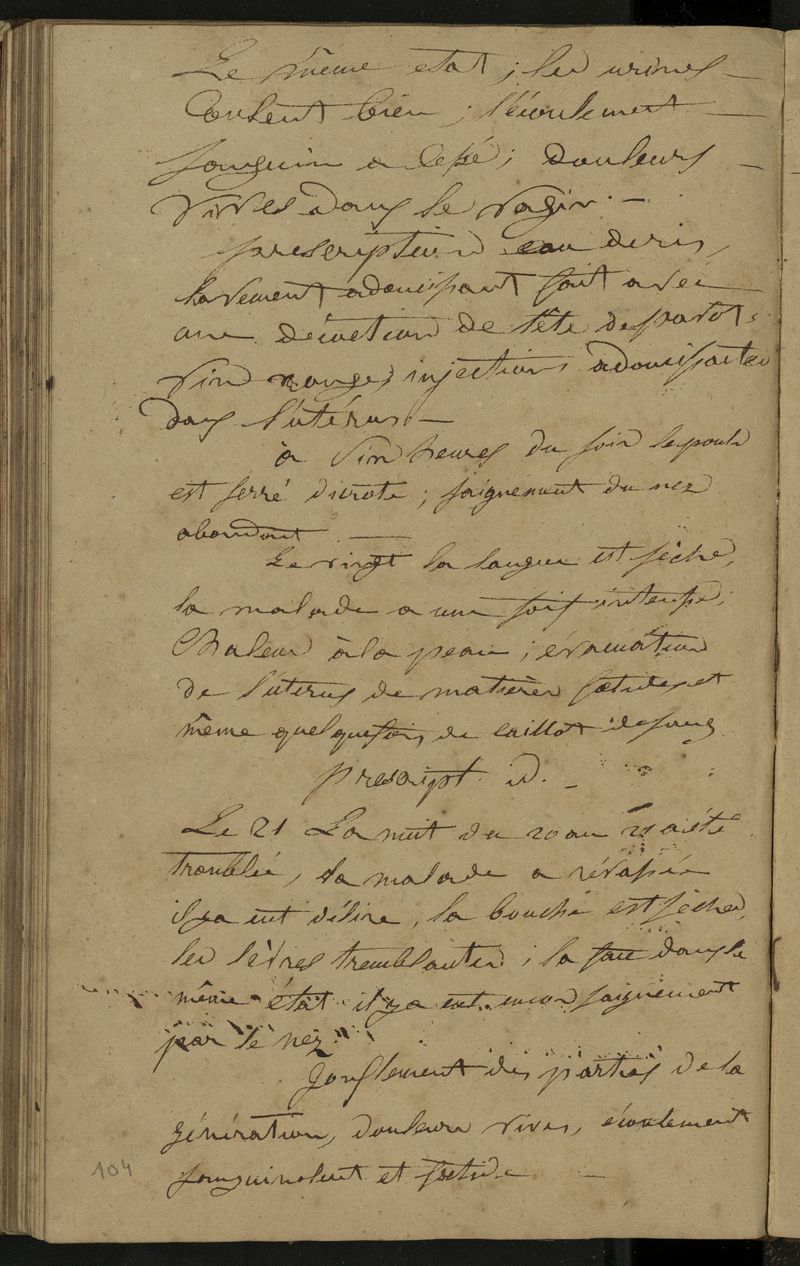 Le même etat ; les urines
Coulent bien ; l'écoulement
sanguin a cessé ; douleurs
vives dans le vagin. —
prescription eau de ris,
lavement adoucissant fait avec
une décoction de tête de pavot,
vin rouge, injections adoucissantes
dans l'utérus —
à heures du soir le pouls
est serré dicrote ; saignement du nez
abondant —
Le vingt la langue est sèche,
la malade a une soif intense ;
Chaleur à la peau ; évacuation
de l'uterus de matières fœtides et
même quelquefois de caillot de sang
prescript. id. —
Le 21 La nuit du 20 au 21 a été
troublée, la malade a révassée
il y a eut délire, la bouche est sèche,
les lèvres tremblantes ; la face dans le
même état il y a eut encor saignement
par le nez.
gonflement des parties de la
génération, douleurs vives, écoulement
sanguinolent et fœtide —
104